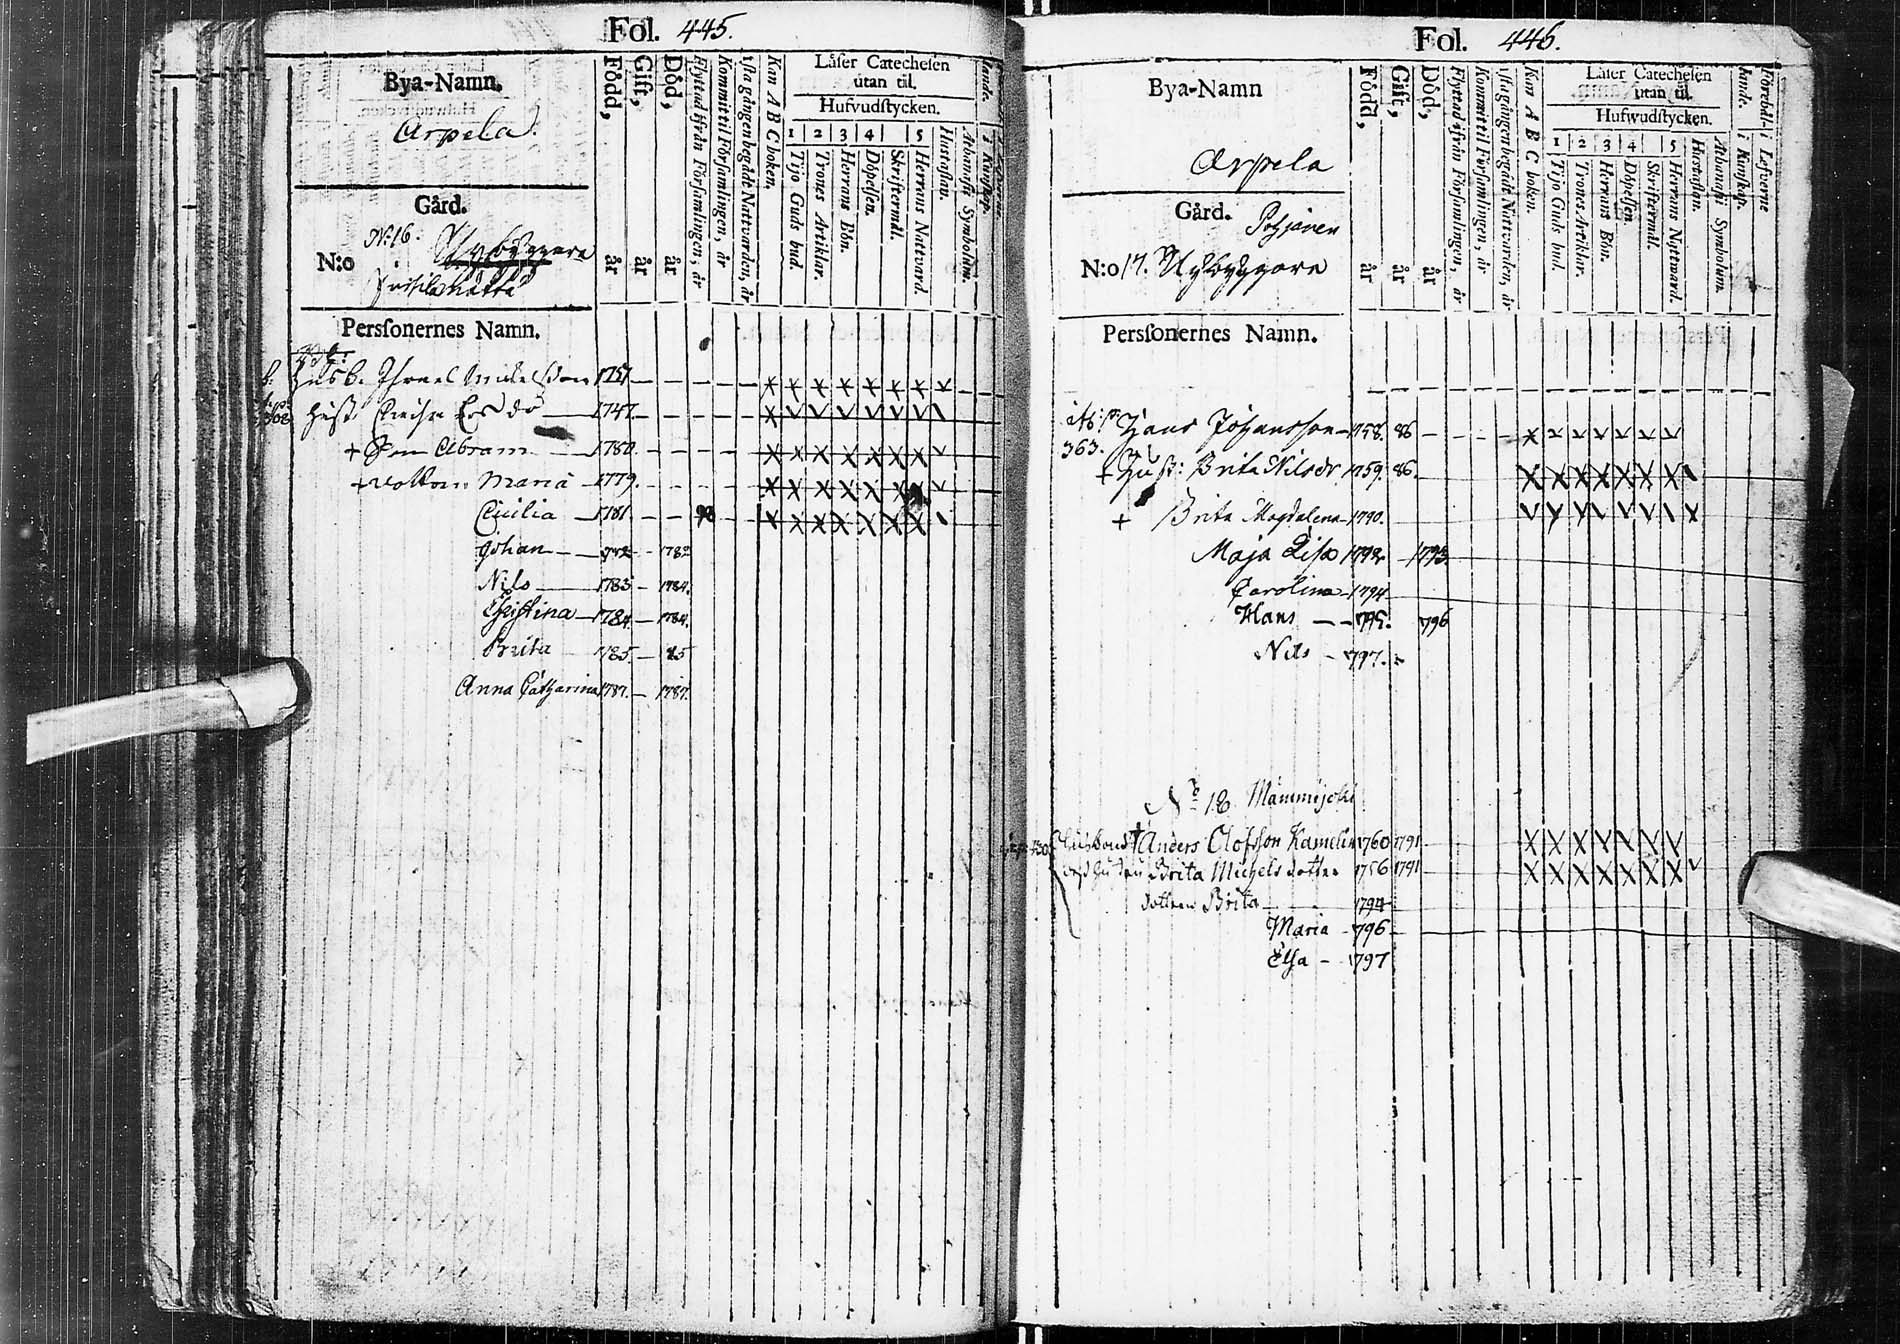 Fol. 445.
Bya-Namn.
Arpela.
Gård.
No: 16.
N:o Nybyggare
Född, år
Gift, år
Död, år
Flyttad ifrån Församlingen, år
Kommit til Församlingen, år
1sta gången begådt Nattvarden, år
Kan A B C boken.
Läser Catechesen
utan til.
Hufvudstycken.
1 2 3 4 5
Tijo Guds bud.
Trones Artiklar.
Herrans Bön.
Döpelsen.
Skriftermål.
Herrans Nattvard.
Hustaflan.
Athanasii Symbolum.
Persſonernes Namn.
Husb. Israel Michelsson 1751
Hust. Ersdr 1747.
+ Son Abram 1780.
+ Maria 1779.
Cecilia 1781. 98
Johan 1782 1782
Nils 1783 1784.
Christina 1784. 1784.
Brita 1785 85
Anna Catharina 1787. 1787.
Fol. 446.
Bya-Namn
Arpela
Gård. Pohjanen
N:o 17. Nybyggare
Född, år
Gift, år
Död, år
Flyttad ifrån Församlingen, år
Kommit til Församlingen, år
1sta gången begådt Nattvarden, år
Kan A B C boken.
Läser Catechesen
utan til.
Hufwudstycken.
1 2 3 4 5
Tijo Guds bud.
Trones Artiklar.
Herrans Bön.
Döpelsen.
Skriftermål.
Herrans Nattward.
Hustaflan.
Athanasii Symbolum.
Persſonernes Namn.
Hans Johansson 1758. 86
363.
+ Hust: Brita Nilsdr 1759. 86.
+ Brita Magdalena 1790.
Maja Lisa 1792. 1793.
Carolina 1794
Hans 795. 796
Nils 797.
No 18 Mämmijoki
Husbond † Anders Olofsson Kamlin 1760 1791
Brita Michels dotter 1756 1791
dottren Brita 1794
Maria 796
Elsa 1797